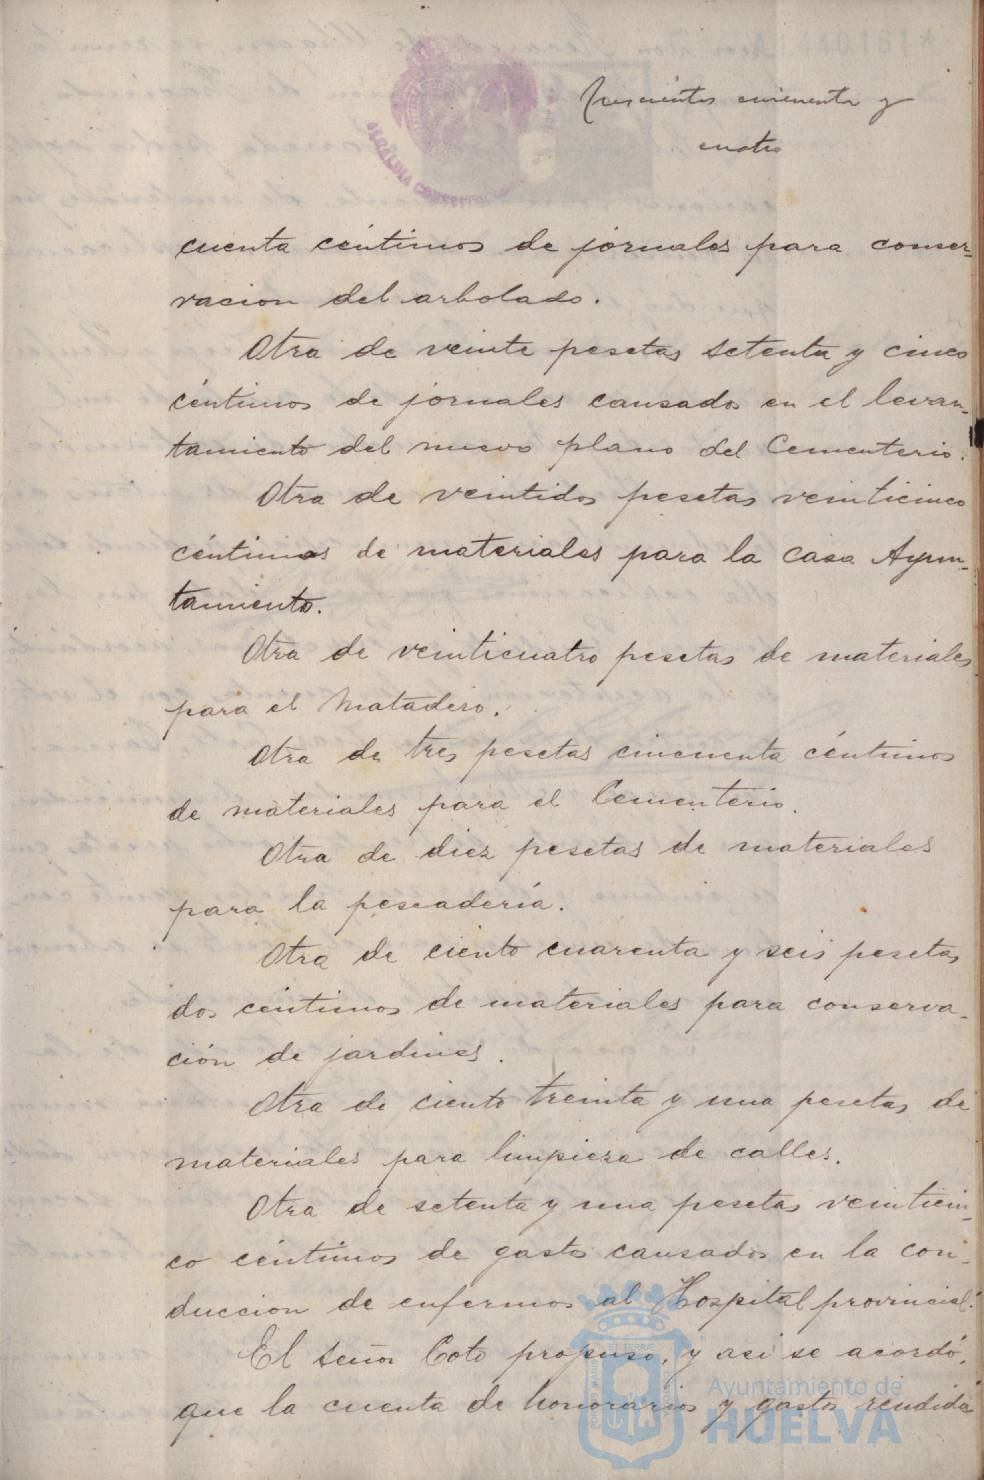 trescientos cincuenta y
cuatro
ALCALDIA CONSTITUCIONAL
cuenta céntimos de jornales para conser-
vacion del arbolado.
Otra de veinte pesetas setenta y cinco
céntimos de jornales causados en el levan-
tamiento del nuevo plano del Cementerio.
Otra de veintidos pesetas veinticinco
céntimos de materiales para la casa Ayun-
tamiento.
Otra de veinticuatro pesetas de materiales
para el Matadero.
Otra de tres pesetas cincuenta céntimos
de materiales para el Cementerio.
Otra de diez pesetas de materiales
para la pescadería.
Otra de ciento cuarenta y seis pesetas
dos céntimos de materiales para conserva-
ción de jardines.
Otra de ciento treinta y una pesetas de
materiales para limpieza de calles.
Otra de setenta y una pesetas veinticin-
co céntimos de gastos causados en la con-
duccion de enfermos al Hospital provincial.
El señor Coto propuso, y asi se acordó,
que la cuenta de honorarios y gastos rendida
Ayuntamiento de
HUELVA